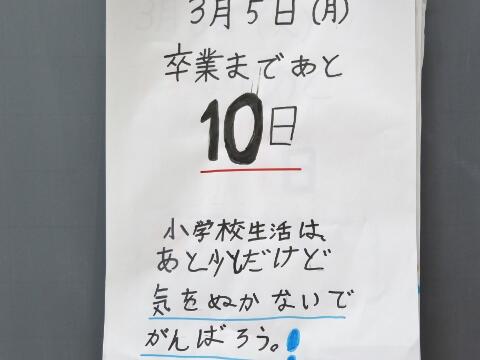 3月5日(月)
卒業まであと
10日
小学校生活は、
あと少しだけど
気をぬかないで
がんばろう。!